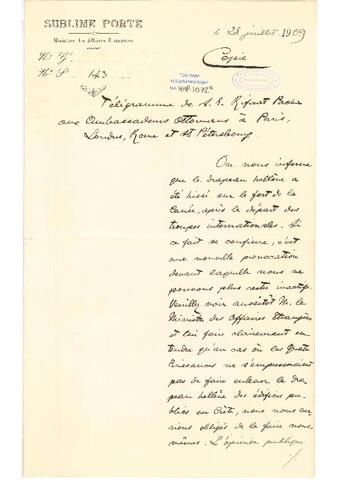 SUBLIME PORTE
Ministère des Affaires Etrangères
le 28 juillet 1909
Copie
No G
No S 143
Télégramme de S. E. Rifaat Pacha
aux Ambassadeurs Ottomans à Paris,
Londres, Rome et St Pétersbourg.
On nous informe
que le drapeau hellène a
été hissé sur le fort de la
Canée, après le départ des
troupes internationales. Si
ce fait se confirme, c'est
une nouvelle provocation
devant laquelle nous ne
pouvons plus rester inactifs.
Veuillez voir aussitôt M. le
Ministre des Affaires Etrangères
et lui faire clairement en-
tendre qu'au cas où les Quatre
Puissances ne s'empresseraient
pas de faire enlever le dra-
peau hellène des édifices pu-
bliés en Crète, nous nous ver-
rions obligés de le faire nous-
mêmes. L'opinion publique